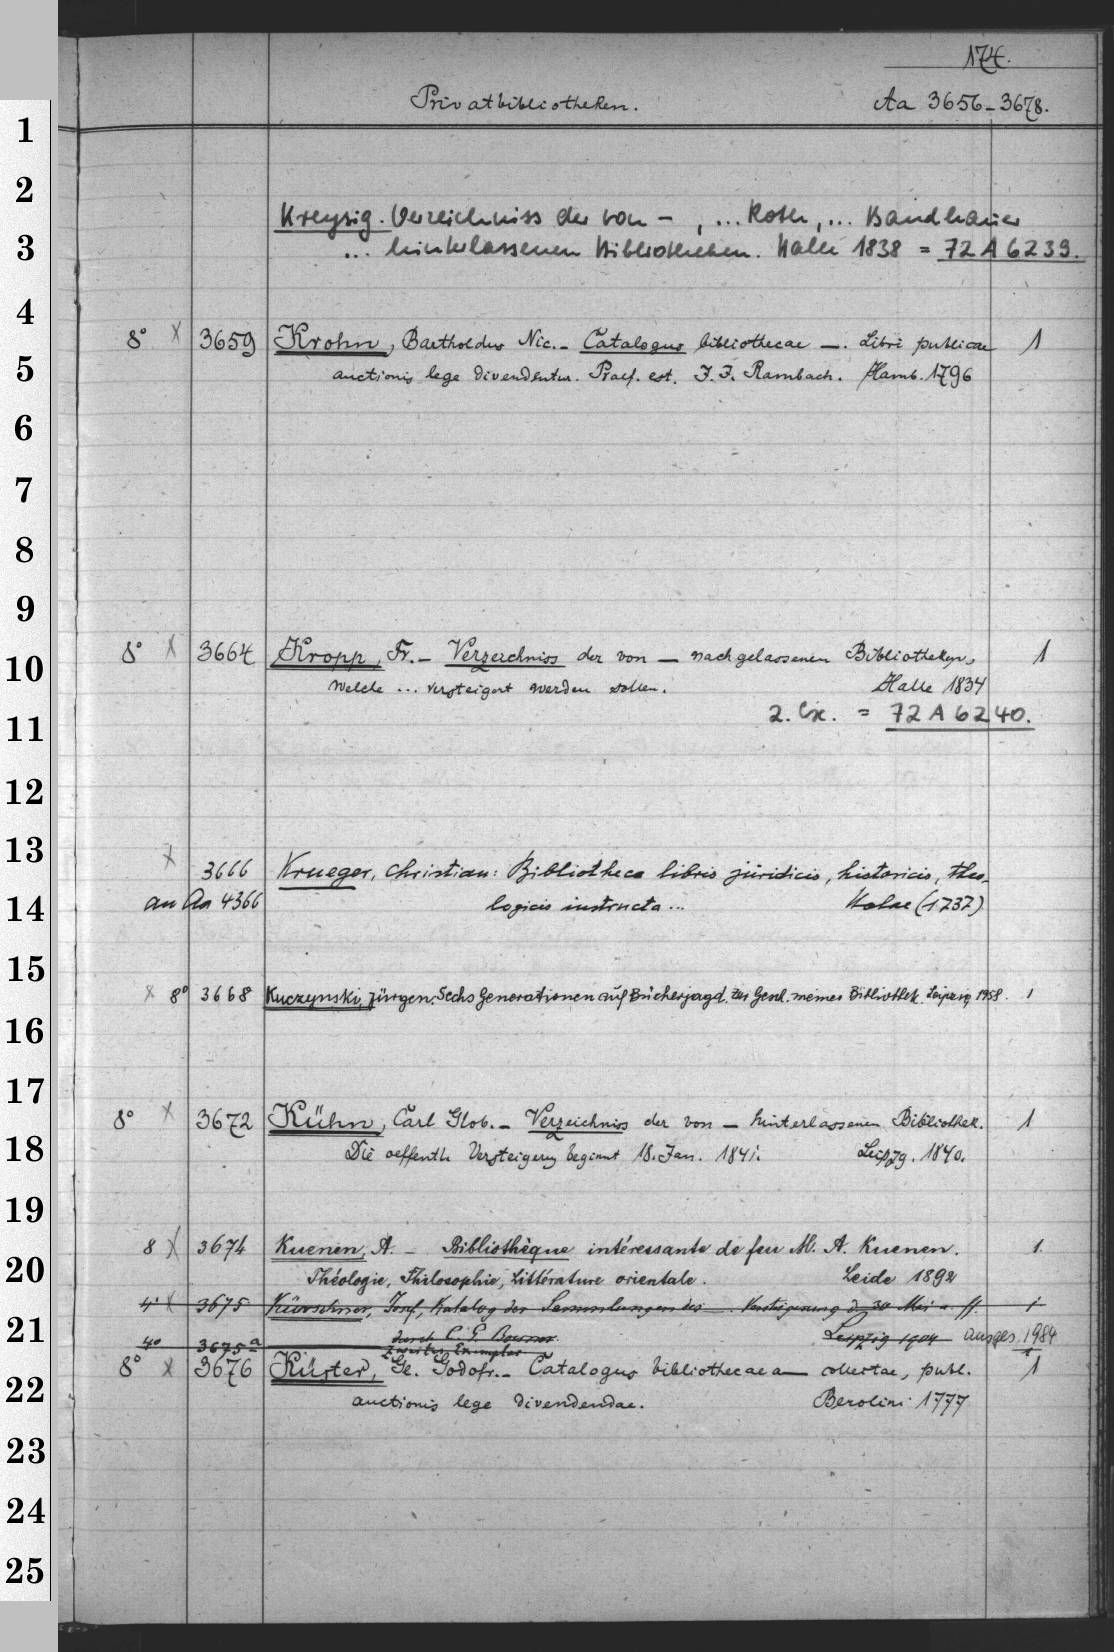 174.
Privatbibliotheken. Aa 3656-3678.
1
2
3
4
5
6
7
8
9
10
11
12
13
14
15
16
17
18
19
20
21
22
23
24
25
Kreysig. Verzeichniss der von - , ... Roth, ... Bandhauer
... hinterlassenen Bibliotheken. Halle 1838 = 72 A 6239.
8° X 3659 Krohn, Bartholdus Nic. - Catalogus bibliothecae —. Libri publicae 1
auctionis lege divendentur. Praef. est. J. J. Rambach. Hamb. 1796
8° X 3664 Kropp, Fr. - Verzeichniss der von — nachgelassenen Bibliotheken, 1
welche ... versteigert werden sollen. Halle 1834
2. Ex. = 72 A 6240.
X 3666 Krueger, Christian: Bibliotheca libris juridicis, historicis, theo-
an Aa 4366 logicis instructa ... (1737)
x 8° 3668 Kuczynski, Jürgen: Sechs Generationen auf Bücherjagd. Zur Gesch. meiner Bibliothek. Leipzig 1958. 1
8° X 3672 Kühn, Carl Glob. - Verzeichniss der von — hinterlassenen Bibliothek. 1
Die oeffentl. Versteigerung beginnt 18. Jan. 1841. Leipzg. 1840.
8 X 3674 Kuenen, A. - Bibliothèque intéressante de feu M. A. Kuenen. 1.
Théologie, Philosophie, Littérature orientale. Leide 1892
4° X 3675 Kürschner, Josef, Katalog der Sammlungen des — Versteigerung d. 30 Mai u. ff. 1
durch C. G. Boerner. Leipzig 1904 ausges. 1984
4° 3675a Zweites Exemplar 1
8° X 3676 Küster, Ge. Godofr. - Catalogus bibliothecae a — collectae, publ. 1
auctionis lege divendendae. Berolini 1777